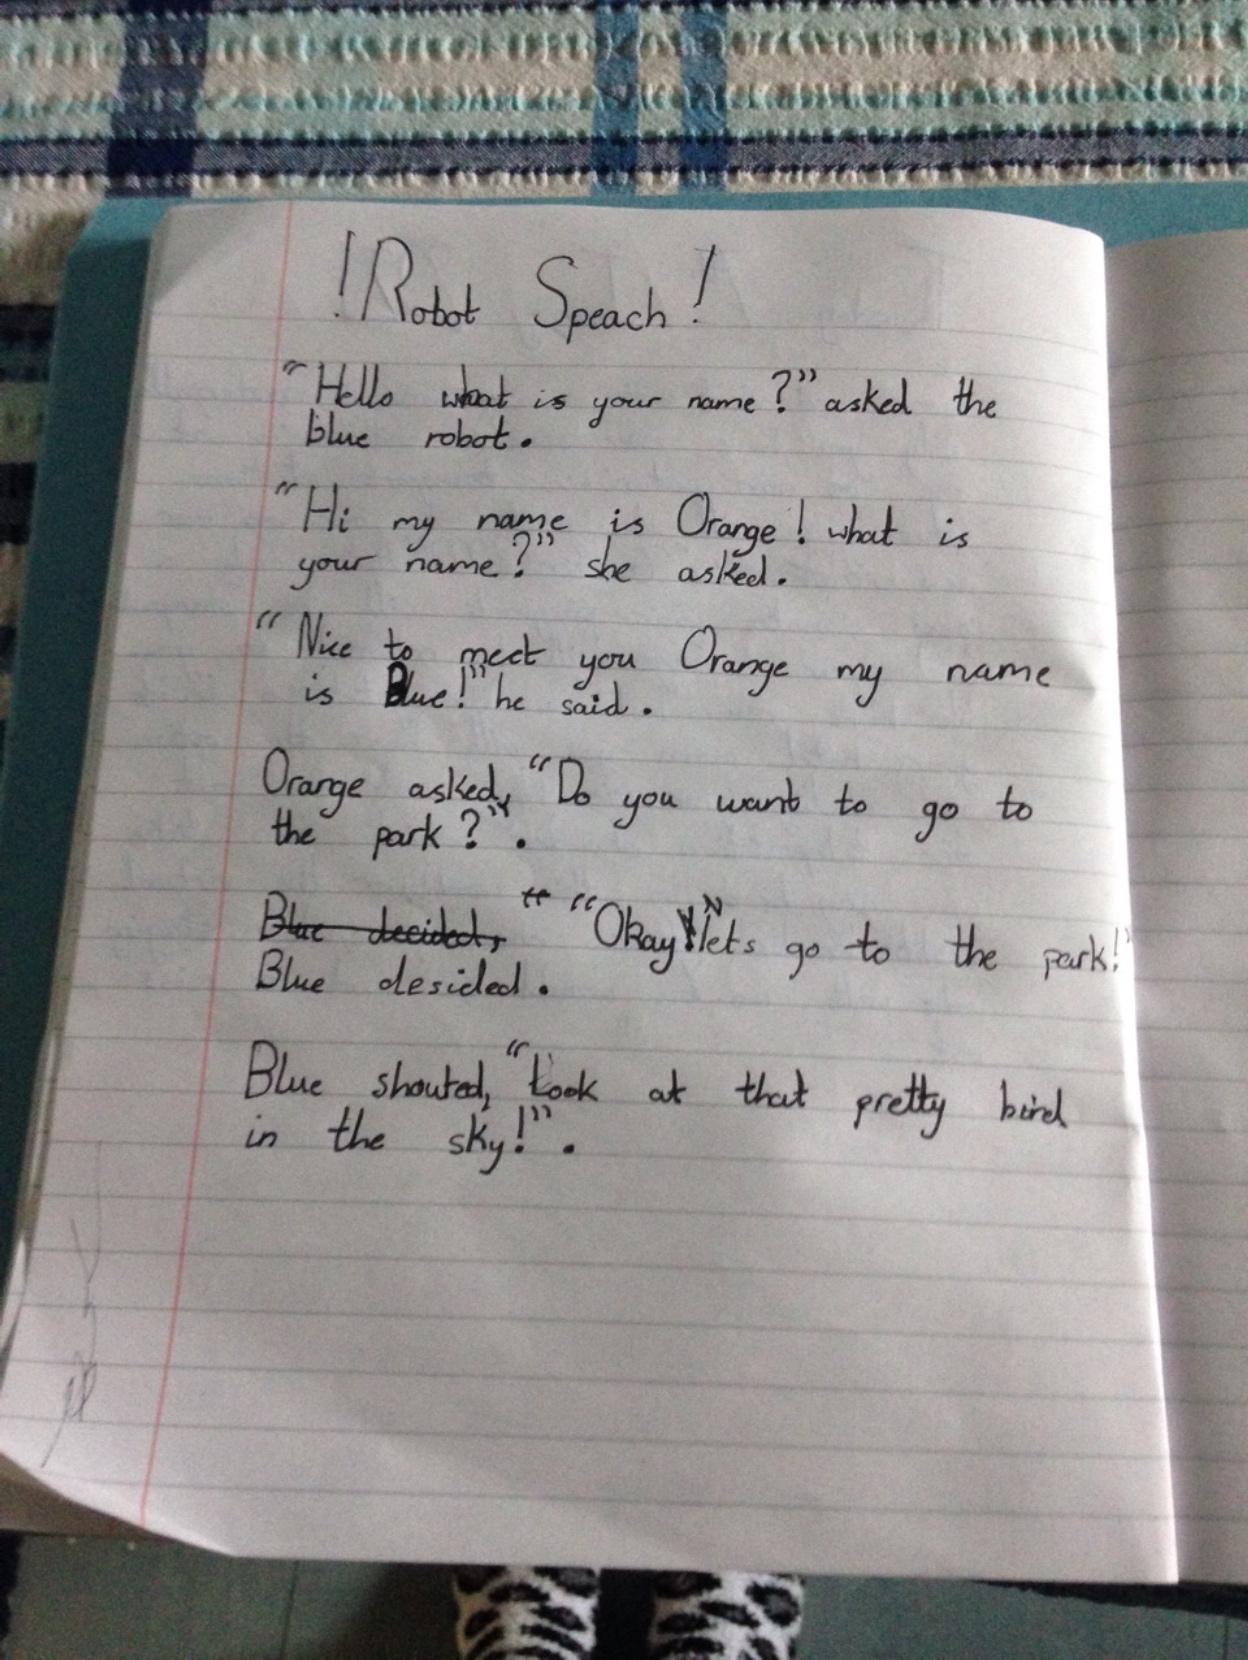 ! Robot Speach !
"Hello what is your name?" asked the
blue robot.
"Hi my name is Orange! what is
your name?" she asked.
"Nice to meet you Orange my name
is Blue!" he said.
Orange asked, "Do you want to go to
the park?".
Blue decided, " "Okay lets go to the park!"
Blue desided.
Blue shouted, "Look at that pretty bird
in the sky!".